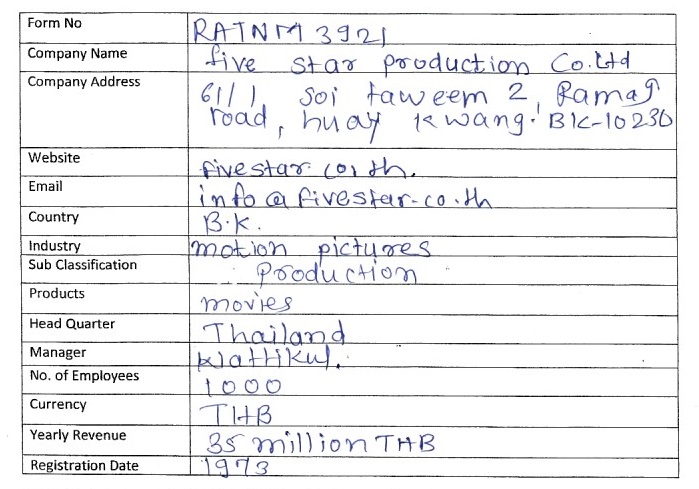 Form No RATNM 3921
Company Name five star production Co.Ltd
Company Address 61/1, Soi taweem 2, Rama9
road, huay kwang. BK-10230
Website fivestar.co.th.
Email info@fivestar.co.th
Country B.K.
Industry motion pictures
Sub Classification production
Products movies
Head Quarter Thailand
Manager
No. of Employees 1000
Currency THB
Yearly Revenue 35 million THB
Registration Date 1973